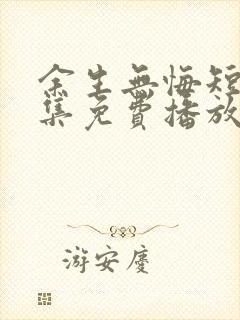 余生無悔短
集免費播放
游安慶